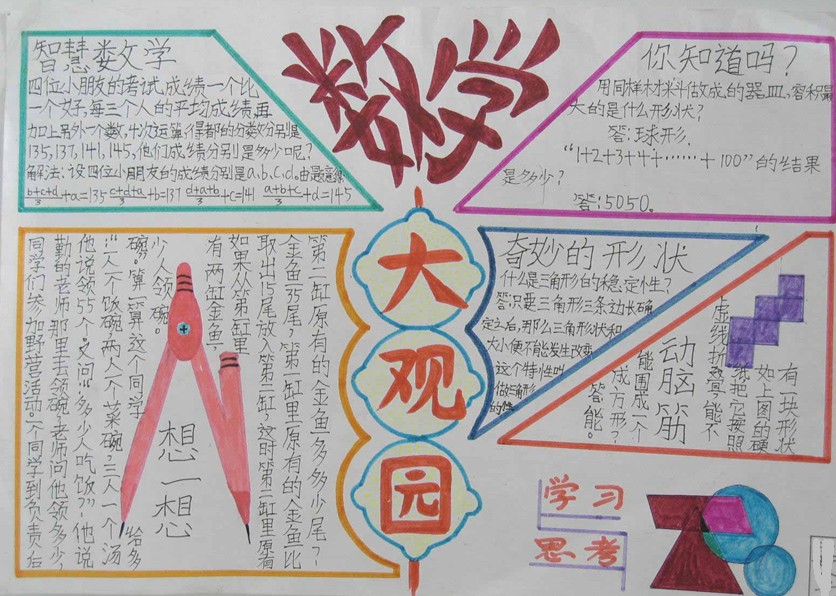 数学
大
观
园
智慧娄文学
四位小朋友的考试,成绩一个比
一个好,每三个人的平均成绩再
加上另外一个数,十次运算,得都的分数分别是
135,137,141,145,他们成绩分别是多少呢?
解法:设四位小朋友的成绩分别是a、b、c、d。由题意
b+c+d/3+a=135 c+d+a/3+b=137 d+a+b/3+c=141 a+b+c/3+d=145
你知道吗?
用同样材料做成的器皿,容积最
大的是什么形状?
答:球形.
"1+2+3+4+……+100"的结果
是多少?
答:5050。
想一想
同学们参加野营活动。一个同学到负责后
勤的老师那里去领碗,老师问他领多少,
他说领55个。又问"多少人吃饭?"他说
"一人一个饭碗,两人一个菜碗,三人一个汤
碗。"算一算这个同学给多
少人领碗。
有两缸金鱼,
如果从第一缸里
取出15尾放入第二缸,这时第二缸里原有
金鱼35尾,第一缸里原有的金鱼比
第二缸原有的金鱼多多少尾?
奇妙的形状
什么是三角形的稳定性?
答:只要三角形三条边长确
定之后,那么三角形状和
大小便不能发生改变,
这个特性叫
做三角形
的
动脑筋
有一块形状
如上图的硬
纸把它按照
虚线折叠,能不
能围成一个
成方形?
答:能。
学习
思考